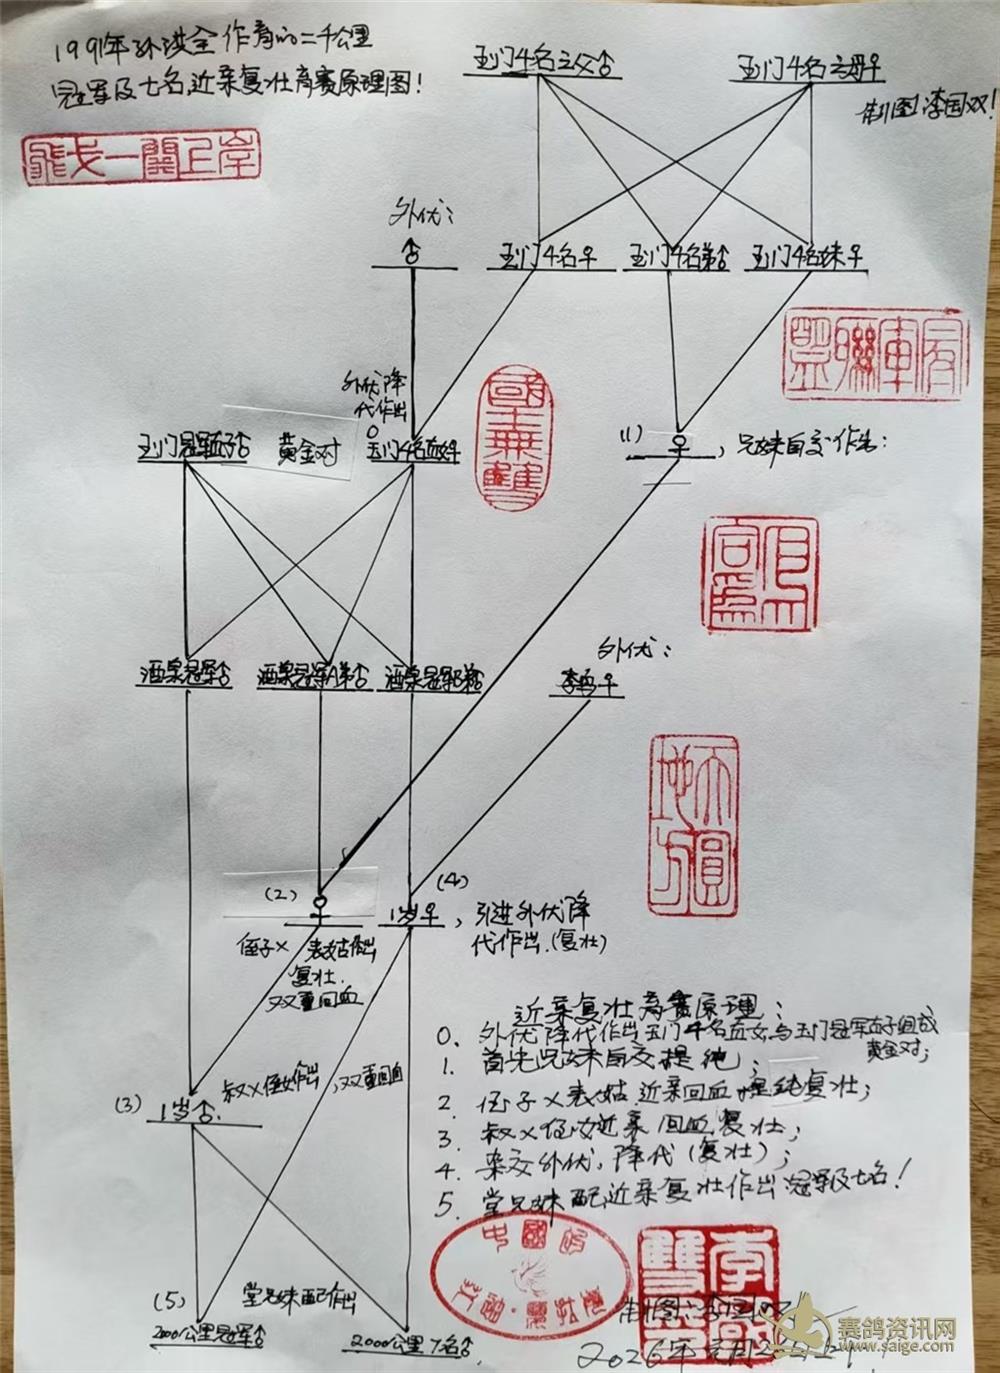 1991年孙洪全作育的二千公里
冠军及七名,近亲复壮育赛原理图!
玉门4名之父♂
玉门4名之母♀
制图李国双!
外优:
♂
玉门4名♀
玉门4名弟♂
玉门4名妹♀
外优降
代作出
0
玉门冠军直子♂
黄金对
玉门4名直女♀
(1)
♀,兄妹自交作出:
國士無雙
外优:
酒泉冠军♂
酒泉冠军A弟♂
酒泉冠军B弟♂
李鸟♀
(2)
♀
(4)
1岁♀,引进外优降
代作出.(复壮)
侄子×表姑作出
复壮.
双重回血
叔×侄女作出,双重回血
(3)
1岁♂.
近亲复壮育赛原理:
0、外优降代作出玉门4名直女,与玉门冠军直子组成
黄金对;
1、首先兄妹自交提纯;
2、侄子×表姑,近亲回血提纯复壮;
3、叔×侄女近亲回血,复壮;
4、杂交外优,降代(复壮);
5、堂兄妹配,近亲复壮作出冠军及七名!
(5)
堂兄妹配作出
2000公里冠军♂
2000公里7名♂.
制图:李国双
2026年元月
赛鸽资讯网
www.saige.com